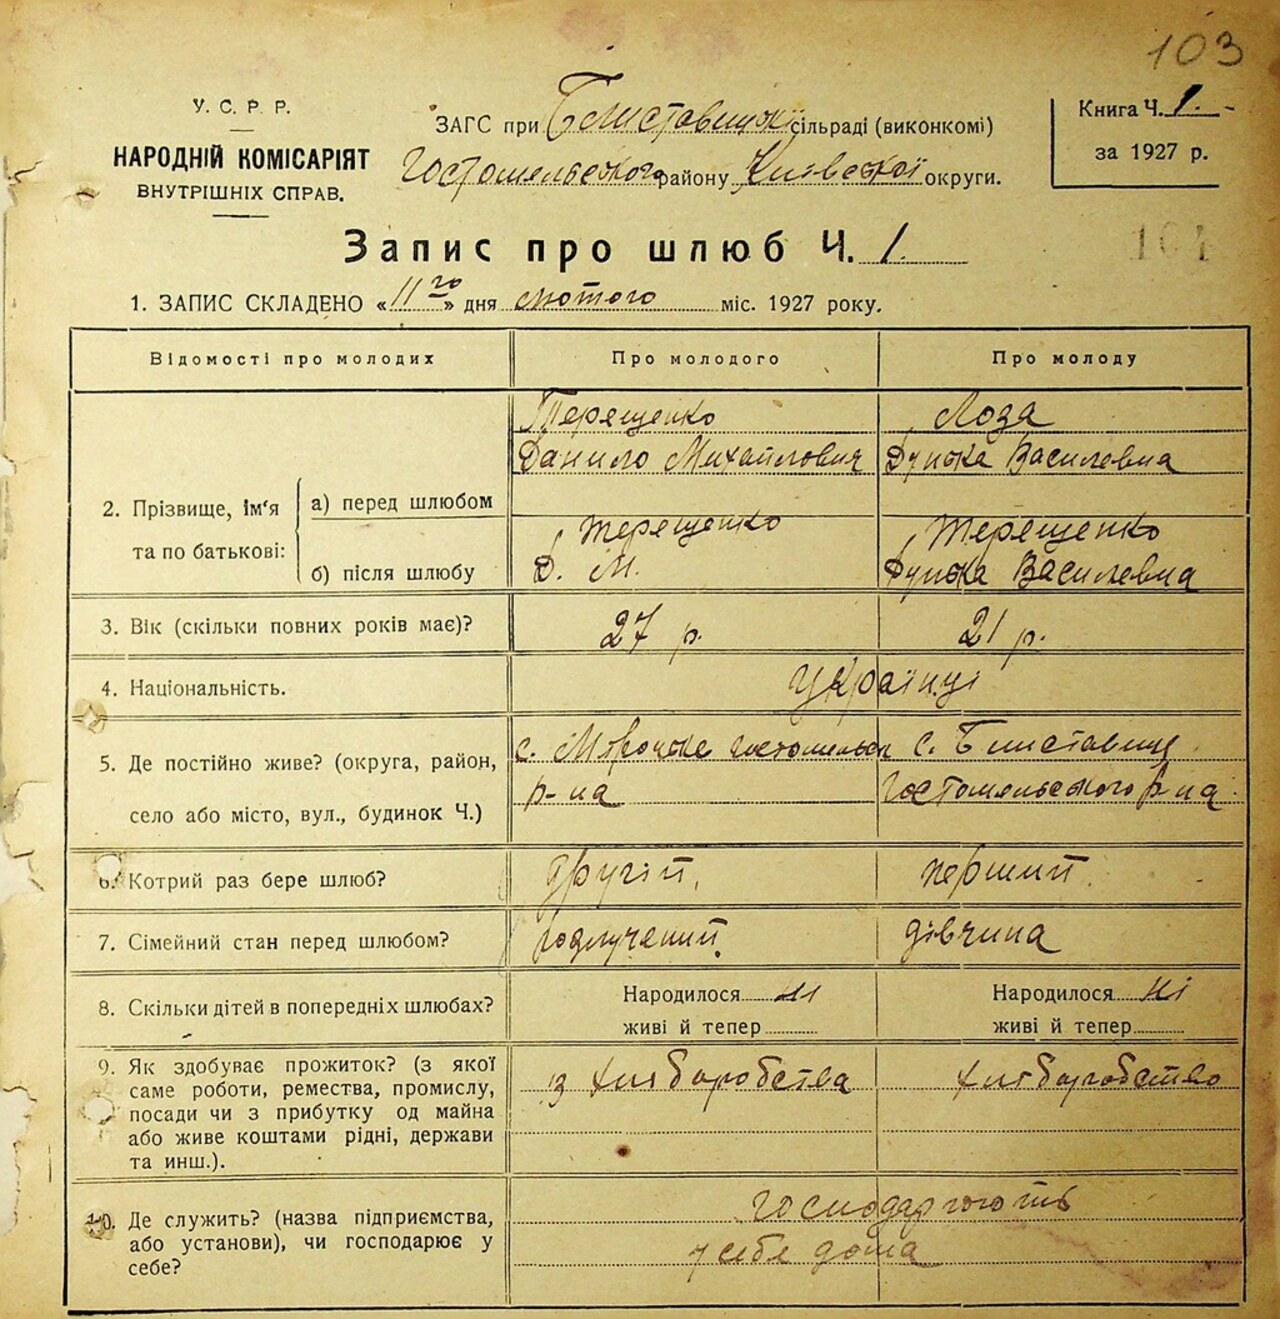 103
У. С. Р. Р.
НАРОДНІЙ КОМІСАРІЯТ
ВНУТРІШНІХ СПРАВ.
ЗАГС при Блиставицькій сільраді (виконкомі)
Гостомельського району Київської округи.
Книга Ч. 1.
за 1927 р.
104
Запис про шлюб Ч. 1.
1. ЗАПИС СКЛАДЕНО «11го» дня лютого міс. 1927 року.
Відомості про молодих
Про молодого
Про молоду
2. Прізвище, ім'я та по батькові:
а) перед шлюбом
Терещенко
Данило Михайлович
Лоза
Дунька Василевна
б) після шлюбу
Терещенко
Д. М.
Терещенко
Дунька Василевна
3. Вік (скільки повних років має)?
27 р.
21 р.
4. Національність.
Українці
5. Де постійно живе? (округа, район,
село або місто, вул., будинок Ч.)
с. Мироцьке Гостомельск
р-на
с. Блиставице
Гостомельського р-на
6. Котрий раз бере шлюб?
другій
перший
7. Сімейний стан перед шлюбом?
розлучений.
дівчина
8. Скільки дітей в попередніх шлюбах?
Народилося
живі й тепер
Народилося ні
живі й тепер
9. Як здобуває прожиток? (з якої
саме роботи, ремества, промислу,
посади чи з прибутку од майна
або живе коштами рідні, держави
та инш.).
із хліборобства
хліборобство
10. Де служить? (назва підприємства,
або установи), чи господарює у
себе?
господарюють
у себе дома